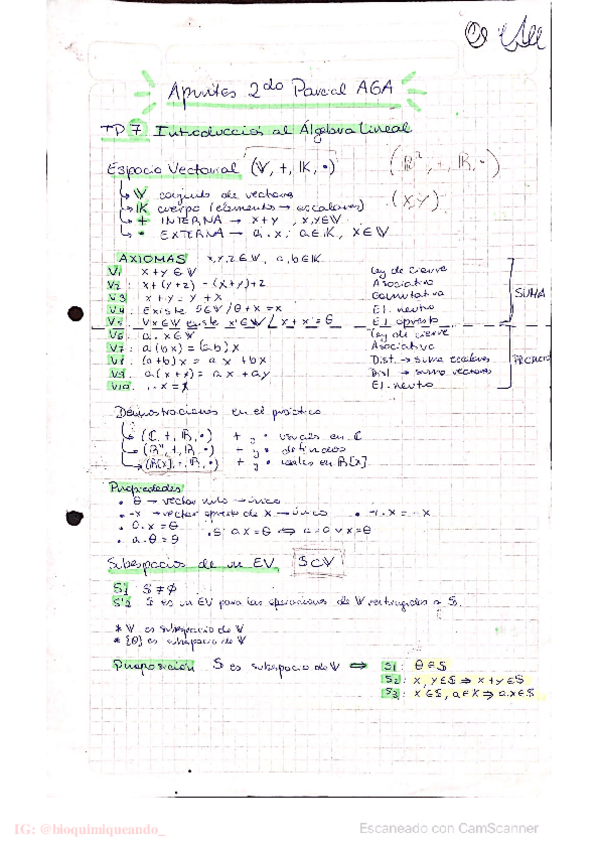 Apuntes 2do Parcial AGA
TP 7 Introducción al Álgebra Lineal
Espacio Vectorial (V, +, IK, •) (R², +, R, •)
(x,y)
↳ V conjunto de vectores
↳ IK cuerpo (elementos → escalares)
↳ + INTERNA → x+y, x,y∈V
↳ • EXTERNA → a.x; a∈IK, x∈V
AXIOMAS x,y,z∈V, a,b∈IK
V1 x+y∈V Ley de cierre
V2: x+(y+z) = (x+y)+z Asociativa
V3 x+y = y+x Conmutativa SUMA
V4: Existe θ+x=x El. neutro
V5 ∀x∈V existe x'∈V / x+x'=θ El. opuesto
V6: a.x∈V Ley de cierre
V7: a(bx)=(ab)x Asociativa
V8: (a+b)x = ax+bx Dist. → suma escalares
V9: a(x+y)= ax+ay Dist → suma vectores
V10 .x= El. neutro
Demostraciones en el práctico
↳ (C, +, R, •) + y • usuales en C
↳ (Rⁿ, +, R, •) + y • definidos
↳ (R[x], +, R, •) + y • usuales en R[x]
Propiedades
• θ → vector nulo → único
• -x → vector opuesto de x → único • -1.x = -x
• 0.x=θ • Si ax=θ ⟺ a=0 ∨ x=θ
• a.θ=θ
Subespacios de un EV S⊂V
S1 S≠∅
S2 S es un EV para las operaciones de V restringidas a S.
* V es subespacio de V
* {θ} es subespacio de V
Proposición S es subespacio de V ⟺ S1: θ∈S
S2: x,y∈S ⇒ x+y∈S
S3: x∈S, a∈K ⇒ a.x∈S
IG: @bioquimiqueando_
Escaneado con CamScanner